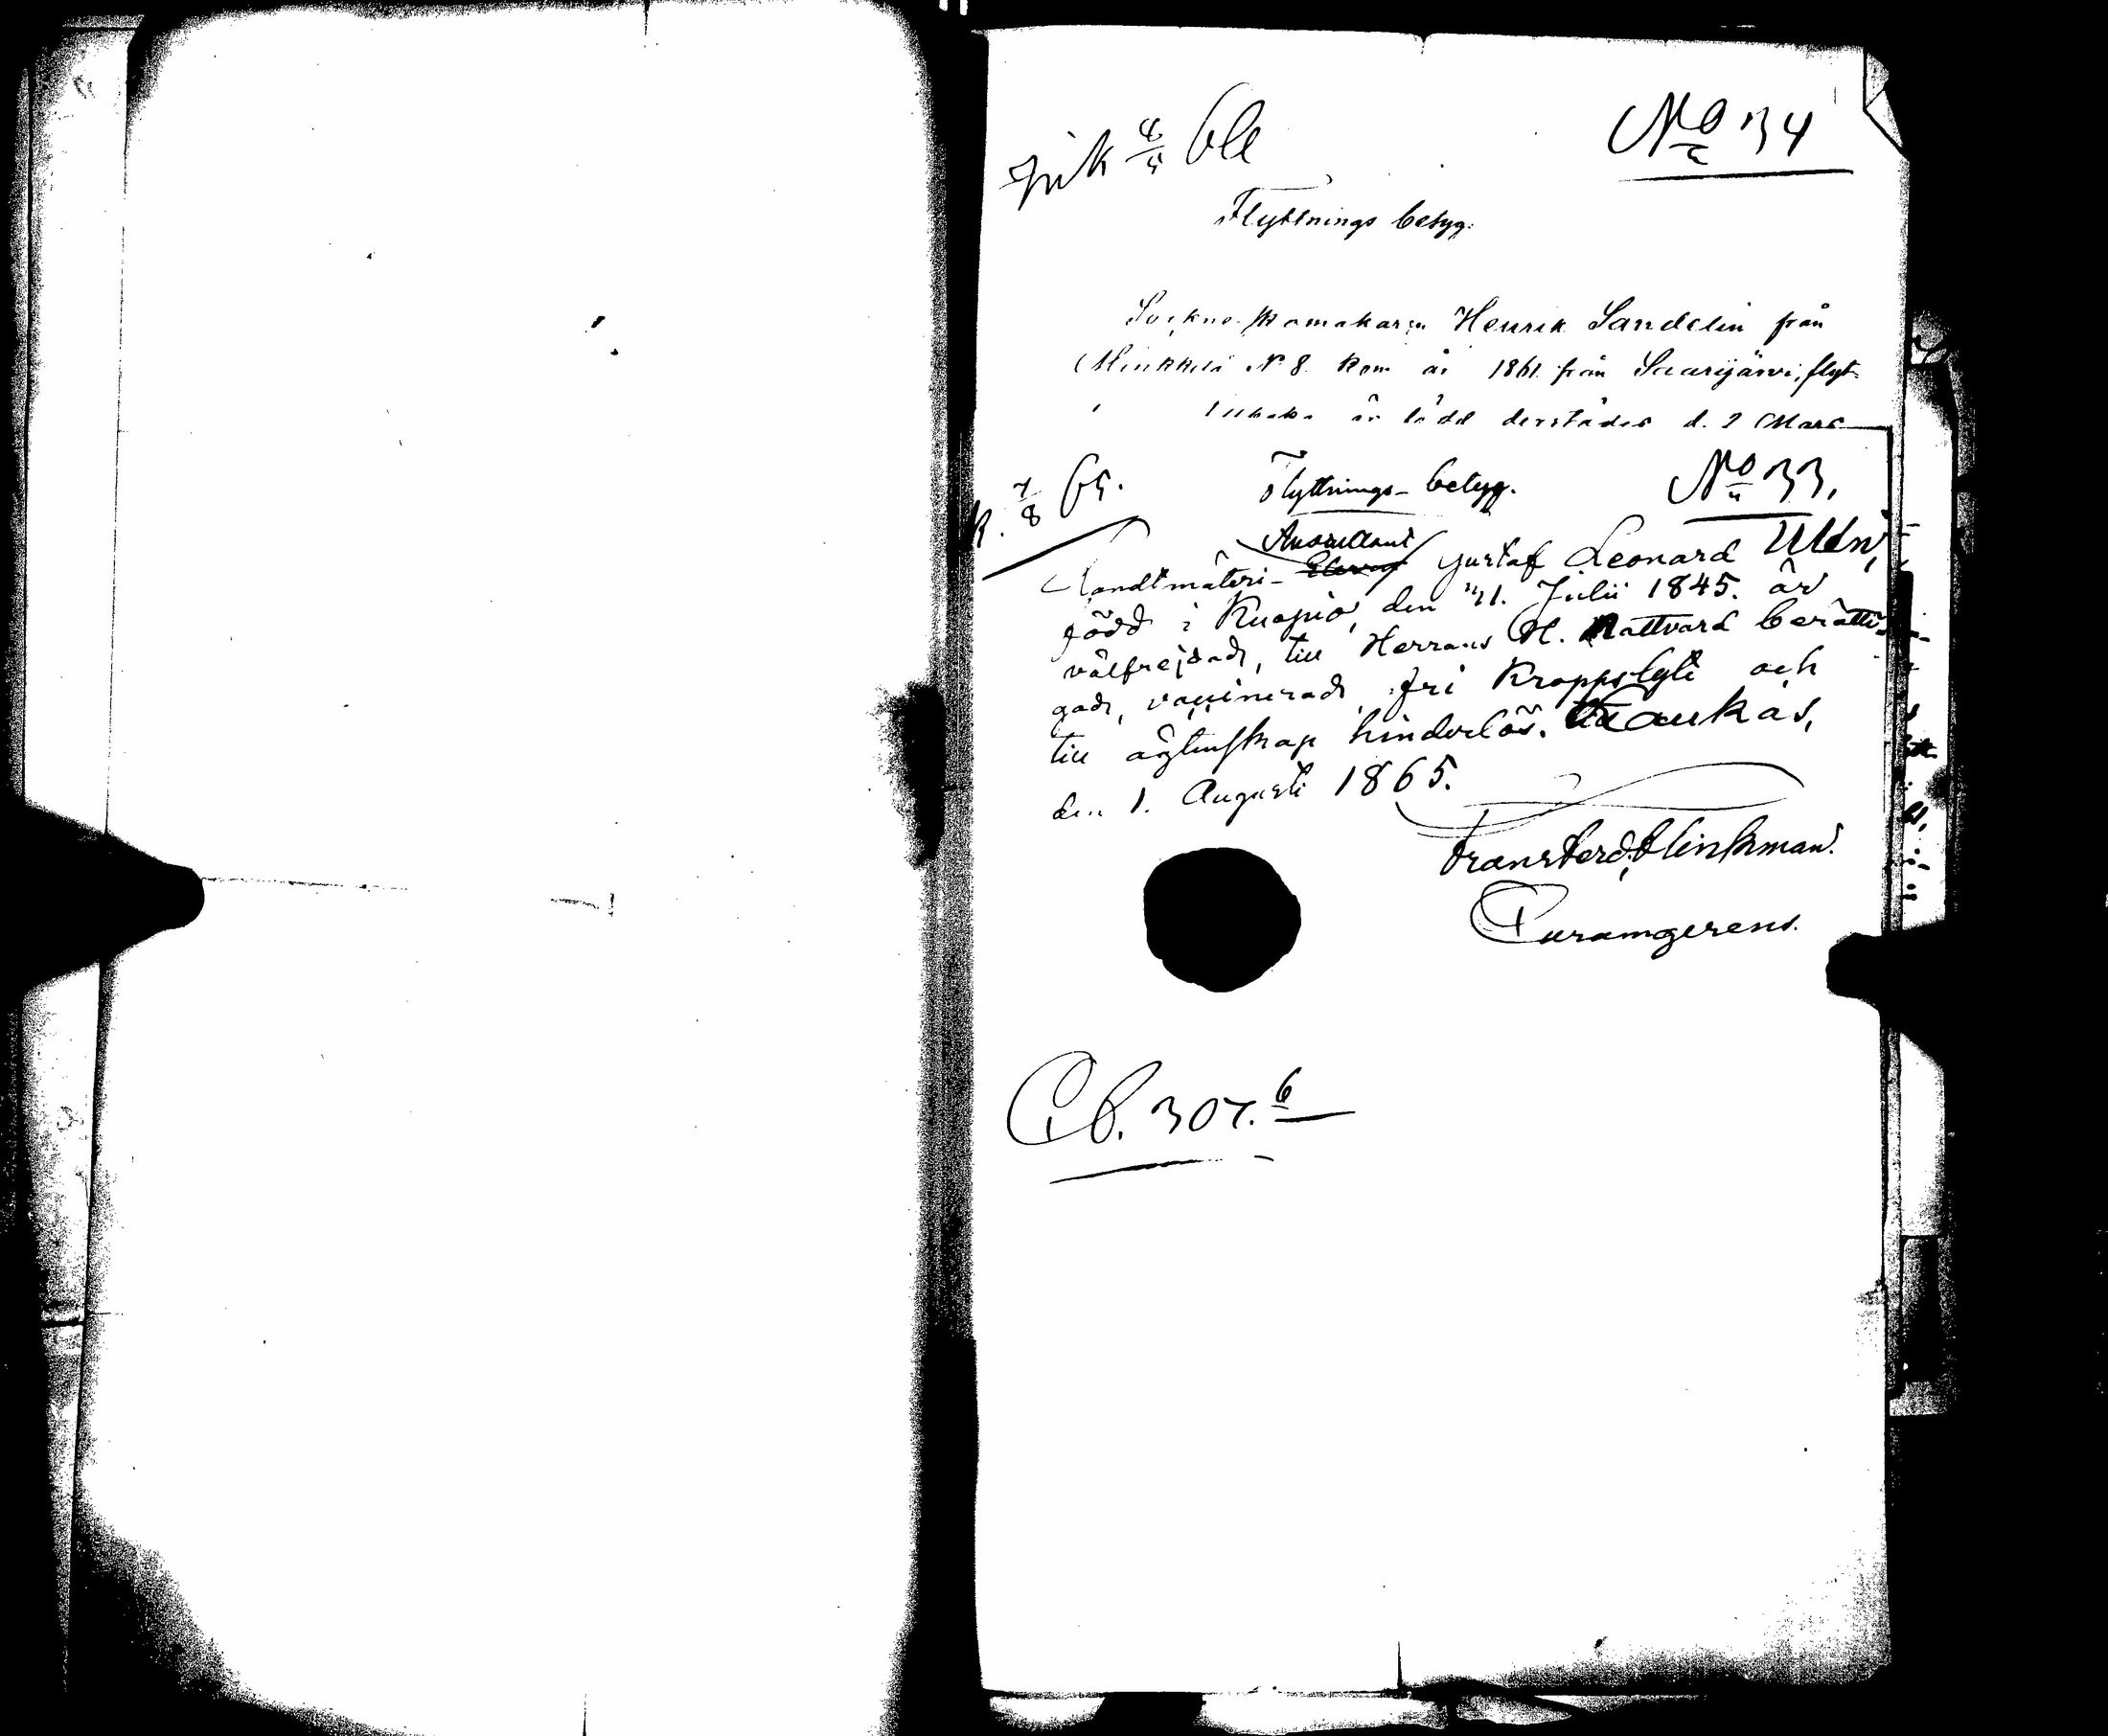 No 34
Flyttnings betyg.
Sockne skomakaren Henrik Sandelin från
N 8. kom år 1861 från Saarijärvi, flyt-
är född derstädes d. 2 Mars
7/8 65. Flyttnings-betyg. No 33.
Auscultant
Landtmäteri- Gustaf Leonard
född i Kuopio, den 21. Julii 1845. är
välfrejdad, till Herrans H. Nattvard berätti-
gad, vaccinerad, fri Kroppslyte och
till ägtenskap hinderlös. Laukas,
den 1. Augusti 1865.
Frans Ferd. Blinkman.
Curamgerens.
C.b. 307. 6